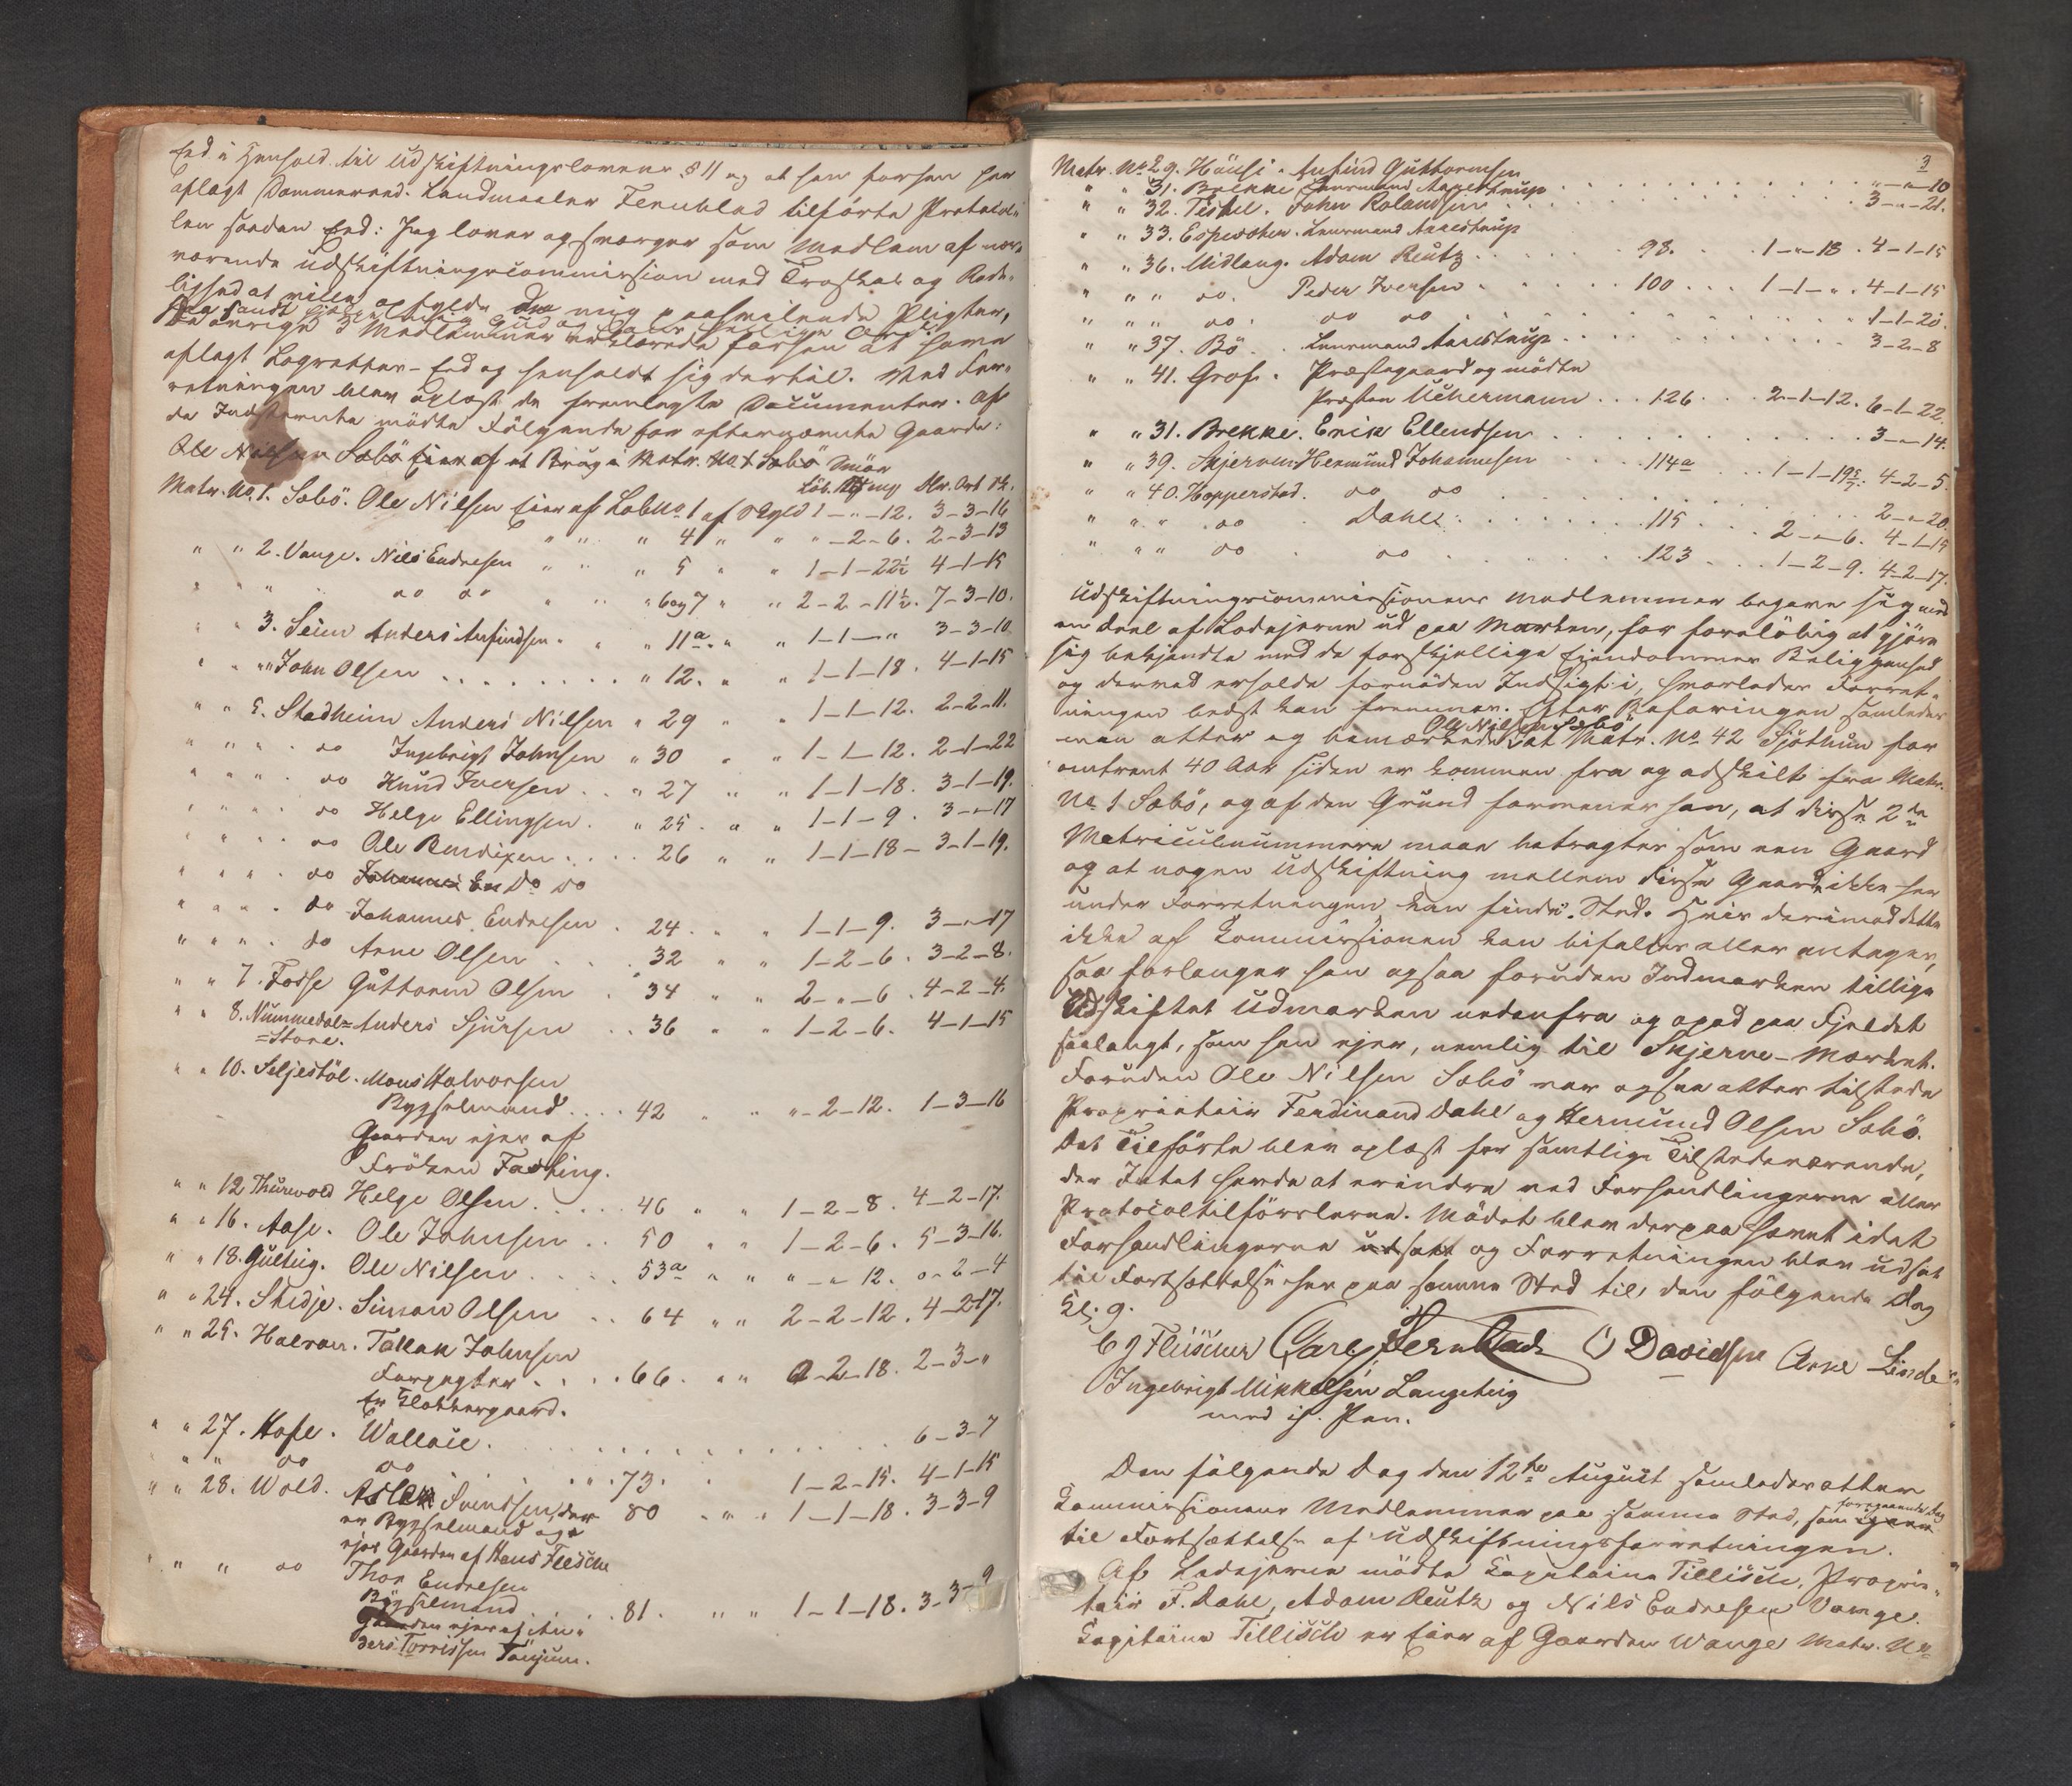 Eed i Henhold til Udskiftningslovens § 11 og at han forhen har
aflagt Dommereed. Landmaaler Fernblad tilførte Protocol-
len saadan Eed: Jeg lover og sværger som Medlem af nær-
værende Udskiftningscommission med Troskab og Rede-
lighed at ville opfylde de mig paahvilende Pligter,
saa sandt hjelpe mig Gud og Hans hellige Ord.
De øvrige 3 Medlemmer erklærede forhen at have
aflagt Lagrettes-Eed og henholdt sig dertil. Ved For-
retningen blev oplæst de fremlagte Documenter. Af
de Indstevnte mødte Følgende for efternævnte Gaarde:
Ole Nilsen Sæbö Eier af et Brug i Matr. No 1 Sæbö
Smör
Löb. mg Dlr. Ort Sk.
Matr. No 1. Sæbö. Ole Nilsen Eier af Löb No 1 af Skyld 1 - " - 12. 3-3-16
" " " 4 " " " - 2 - 6. 2-3-13
" " 2. Vange. Nils Endresen " " " 5 " " 1-1-22½ 4-1-15
" " " do do " " " 6 og 7 " " 2-2-11½. 7-3-10.
" " 3. Seim Anders Anfindsen " " " 11a " " 1-1-" 3-3-10
" " " John Olsen . . . . . . . . " 12. " " 1-1-18. 4-1-15
" " 5. Stadheim Anders Nilsen " 29 " " 1-1-12. 2-2-11.
" " " do Ingebrigt Johnsen " 30 " " 1-1-12. 2-1-22
" " " do Knud Iversen . . " 27 " " 1-1-18. 3-1-19.
" " " do Helge Ellingsen . " 25 . " " 1-1-9. 3-"-17
" " " do Ole Bendixen . . . . 26 " " 1-1-18 - 3-1-19.
" " " do Johannes En Do do
" " " do Johannes Endresen . 24. " " 1-1-9. 3-"-17
" " " do Arne Olsen . . . . 32 " " 1-2-6. 3-2-8.
" " 7. Fosse Guttorm Olsen . 34 " " 2-"-6. 4-2-4.
" " 8. Nummedal= Anders Sjursen . . 36 " " 1-2-6. 4-1-15
=Store.
" " 10. Seljestöl. Mons Halvorsen
Bygselmand . . . . 42 " " "-2-12. 1-3-16
Gaarden ejes af
Fröken Fasting.
" " 12 Thurevold Helge Olsen . . . . . 46 " " 1-2-8. 4-2-17.
" " 16. Aase. Ole Johnsen . . 50 " " 1-2-6. 5-3-16.
" " 18. Gulteig. Ole Nilsen . . . . . 53a " " "-"-12. "-2-4
" " 24. Skidje. Simon Olsen . . 64 " " 2-2-12. 4-2-17.
" " 25. Halvan. Tollak Johnsen
Forpagter . . . . . 66. " " "-2-18. 2-3-"
En Klokkergaard.
" " 27. Hofe. Wallace . . . . . . . . . . . . . . 6-3-7
" " do do . . . . . . 73. 1-2-15. 4-1-15
" " 28. Wold. Aslak Svendsen, der 80 " " 1-1-18. 3-3-9
er Bygselmand og
ejes Gaarden af Hans Fleischer
" " " do Thor Endresen
Bygselmand . . . . 81. " " 1-1-18. 3-3-9
Gaarden ejes af An-
ders Torrissen Tönjum.
3
Matr. No 29. Häusi. Anfind Guttormsen . . . . . . . . . "-"-10
" " 31. Brekke Lensmand Aarestrup . . . . . . . . . 3-"-21.
" " 32. Teskel. John Rolandsen . . . . . . . . .
" " 33. Espesæter. Lensmand Aarestrup
" " 36. Midlang. Adam Reutz . . . . . 98. . . 1-"-18. 4-1-15
" " " do. Peder Iversen . . . . . 100 . . . 1-1-". 4-1-15
" " " do. do do . . . . . . . . . . . . 1-1-20.
" " 37. Bö. Lensmand Aarestrup . . . . . . . . . 3-2-8
" " 41. Grof. Præstegaard og mödte
Præsten Uchermann . . . 126 . . 2-1-12. 6-1-22.
" " 31. Brekke. Erik Ellendsen . . . . . . . . . . 3-"-14.
" " 39. Skjerven. Hermund Johannesen . . . 114a . . 1-1-19 4-2-5.
" " 40. Hopperstad. do do . . . . . . . . . 2-"-20.
" " " do . Dahl . . . . . . 115 . . . 2-"-6. 4-1-15
" " " do . do . . . . . . 123 . . . 1-2-9. 4-2-17.
Udskiftningscommissionens Medlemmer begave sig med
en Deel af Lodejerne ud paa Marken, for foreløbig at gjøre
sig bekjendte med de forskjellige Eiendommes Beliggenhed
og derved erholde fornöden Indsigt i, hvorledes Forret-
ningen bedst kan fremmes. Efter Befaringen samledes
man atter og bemærkede Ole Nilsen Sæbö at Matr. No 42 Sjöthun for
omtrent 40 Aar siden er kommen fra og adskilt fra Matr.
No 1 Sæbö, og af den Grund formener han, at disse 2de
Matriculnummere maae betragtes som een Gaard
og at nogen Udskiftning mellem disse Gaarde ikke her
under Forretningen kan finde Sted. Hvis derimod dette
ikke af Kommissionen kan bifaldes eller antages,
saa forlanger han ogsaa foruden Indmarken tillige
Udskiftet Udmarken nedenfra og opad paa Fjeldet
saalangt, som han ejer, nemlig til Skjerve-Mærket.
Foruden Ole Nilsen Sæbö var ogsaa atter tilstede
Proprietair Ferdinand Dahl og Hermund Olsen Sæbö.
Det Tilförte blev oplæst for samtlige Tilstedeværende,
der Intet havde at erindre ved Forhandlingerne eller
Protocoltilförslerne. Mödet blev derpaa hævet idet
Forhandlingerne udsatt og Forretningen blev udsat
til Fortsættelse her paa samme Sted til den følgende Dag
Kl. 9.
C J Fleischer Carl Fernblad O Davidsen Arne Linde
Ingebrigt Mikkelsen Langeteig
med ih. Pen.
Den følgende Dag den 12te August samledes atter
Kommissionens Medlemmer paa samme Sted, som igaar foregaaende Dag
til Fortsættelse af Udskiftningsforretningen.
Af Lodejerne mødte Capitaine Tillisch, Proprie-
tair F. Dahl, Adam Reutz og Nils Endresen Vange.
Capitaine Tillisch er Eier af Gaarden Wange Matr. No